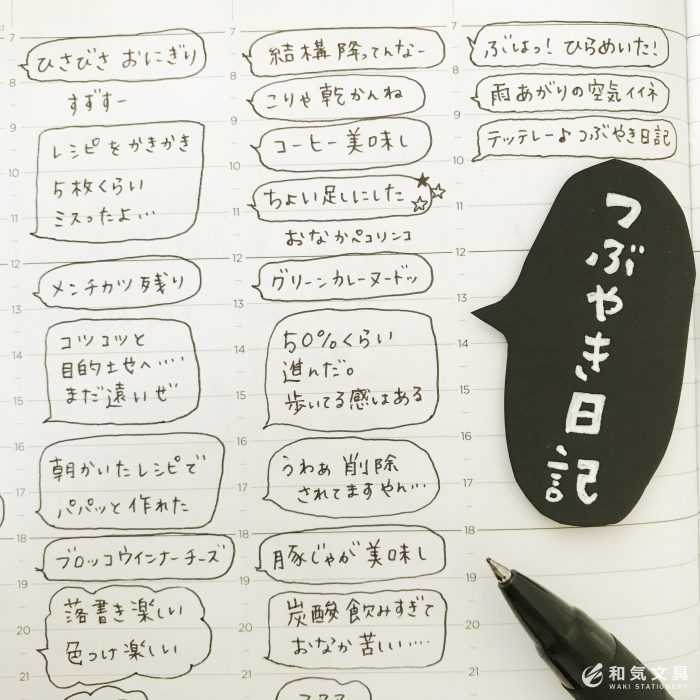 7
ひさびさ おにぎり
8
すずすー
9
レシピをかきかき
10
5枚くらい
11
ミスったよ…
12
メンチカツ残り
13
コツコツと
14
まだ遠いぜ
15
16
朝かいたレシピで
17
パパッと作れた
18
ブロッコウインナーチーズ
19
落書き楽しい
20
色つけ楽しい
21
7
結構降ってんなー
8
こりゃ乾かんね
9
コーヒー美味し
10
ちょい足しにした
11
おなかペコリンコ
12
グリーンカレーヌードッ
13
50%くらい
14
進んだ。
15
歩いてる感はある
16
うわぁ削除
17
されてますやん…
18
豚じゃが美味し
19
炭酸飲みすぎて
20
おなか苦しい…
21
7
ぶはっ!ひらめいた!
8
雨あがりの空気イイネ
9
テッテレー♪つぶやき日記
10
12
13
14
15
16
17
18
19
20
21
つぶやき日記
和気文具
WAKI STATIONERY